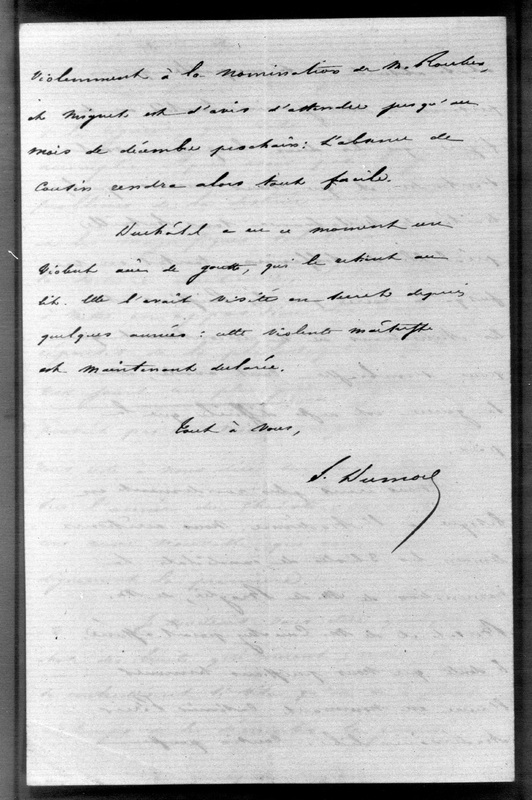 violemment à la nomination de M. Rouher,
et Mignet est d'avis d'attendre jusqu'au
mois de décembre prochain : l'absence de
Cousin rendra alors tout facile.
Duchâtel a en ce moment un
violent accès de goutte, qui le retient au
lit. Elle l'avait visité en secret depuis
quelques années : cette violente maîtresse
est maintenant déclarée.
Tout à vous,
S. Dumon